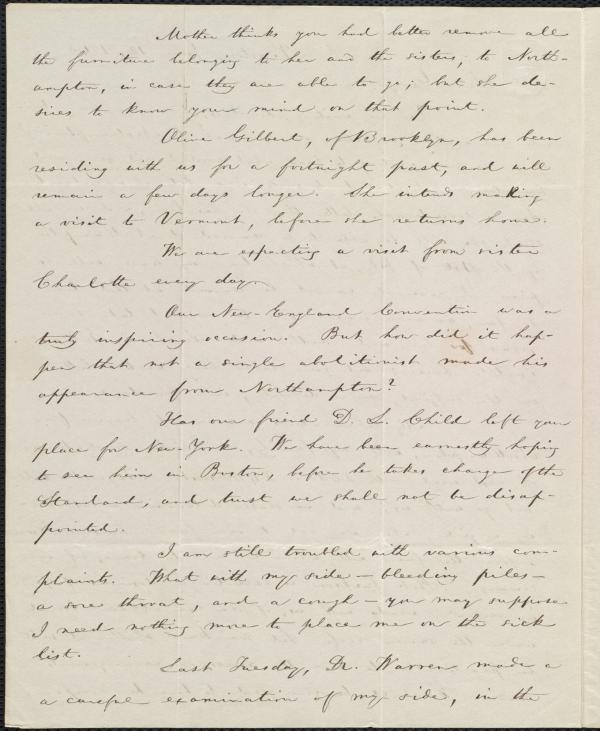 Mother thinks you had better remove all
the furniture belonging to her and the sisters, to North-
ampton, in case they are able to go; but she de-
sires to know your mind on that point.
Olive Gilbert, of Brooklyn, has been
residing with us for a fortnight past, and will
remain a few days longer. She intends making
a visit to Vermont, before she returns home.
We are expecting a visit from sister
Charlotte every day.
Our New-England Convention was a
truly inspiring occasion. But how did it hap-
pen that not a single abolitionist made his
appearance from Northampton?
Has our friend D. L. Child left your
place for New-York. We have been earnestly hoping
to see him in Boston, before he takes charge of the
Standard, and trust we shall not be disap-
pointed.
I am still troubled with various com-
plaints. What with my side — bleeding piles —
a sore throat, and a cough — you may suppose
I need nothing more to place me on the sick
list.
Last Tuesday, Dr. Warren made a
a careful examination of my side, in the